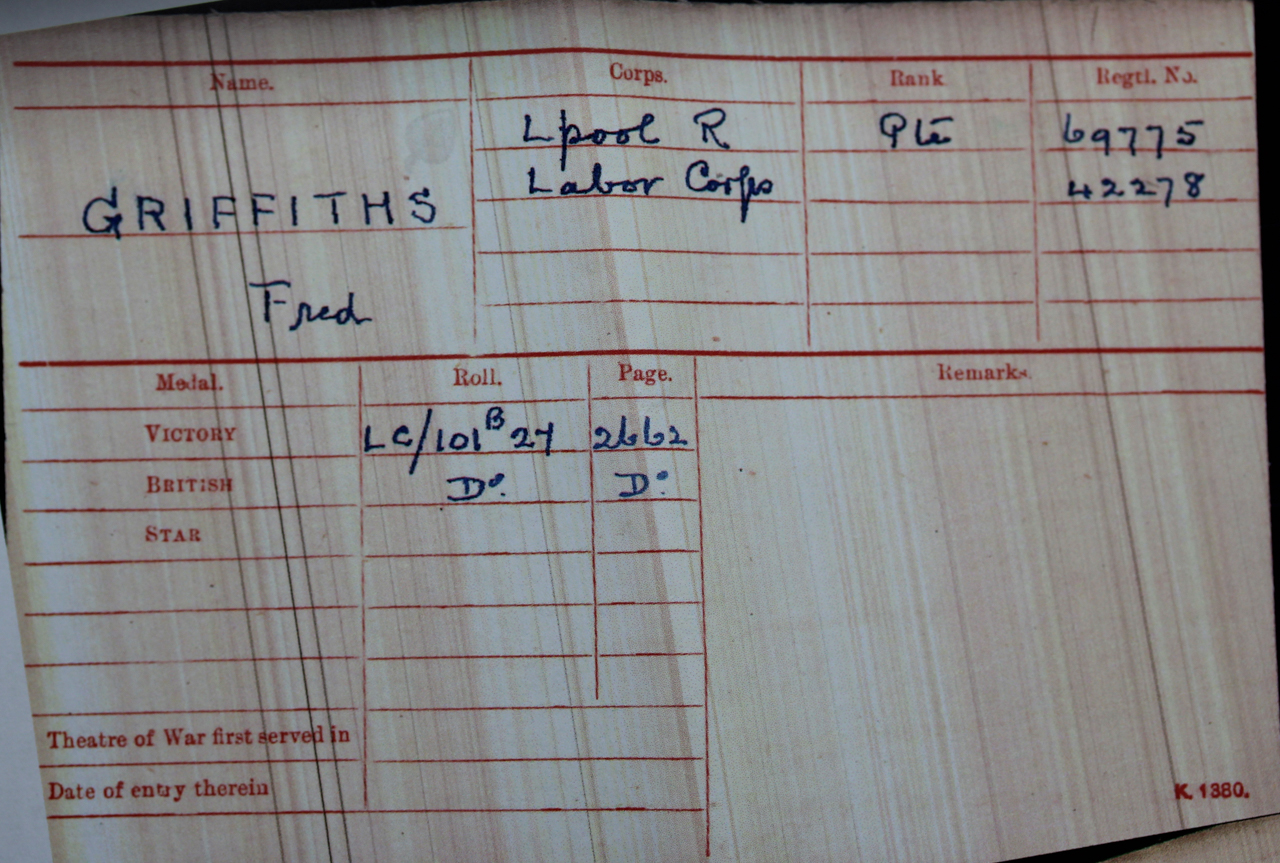 Name. Corps. Rank Regtl. No.
Lpool R Pte 69775
Labor Corps 42278
GRIFFITHS
Fred
Medal. Roll. Page. Remarks.
VICTORY LC/101 B 27 2662
BRITISH Do. Do.
STAR
Theatre of War first served in
Date of entry therein
K. 1380.